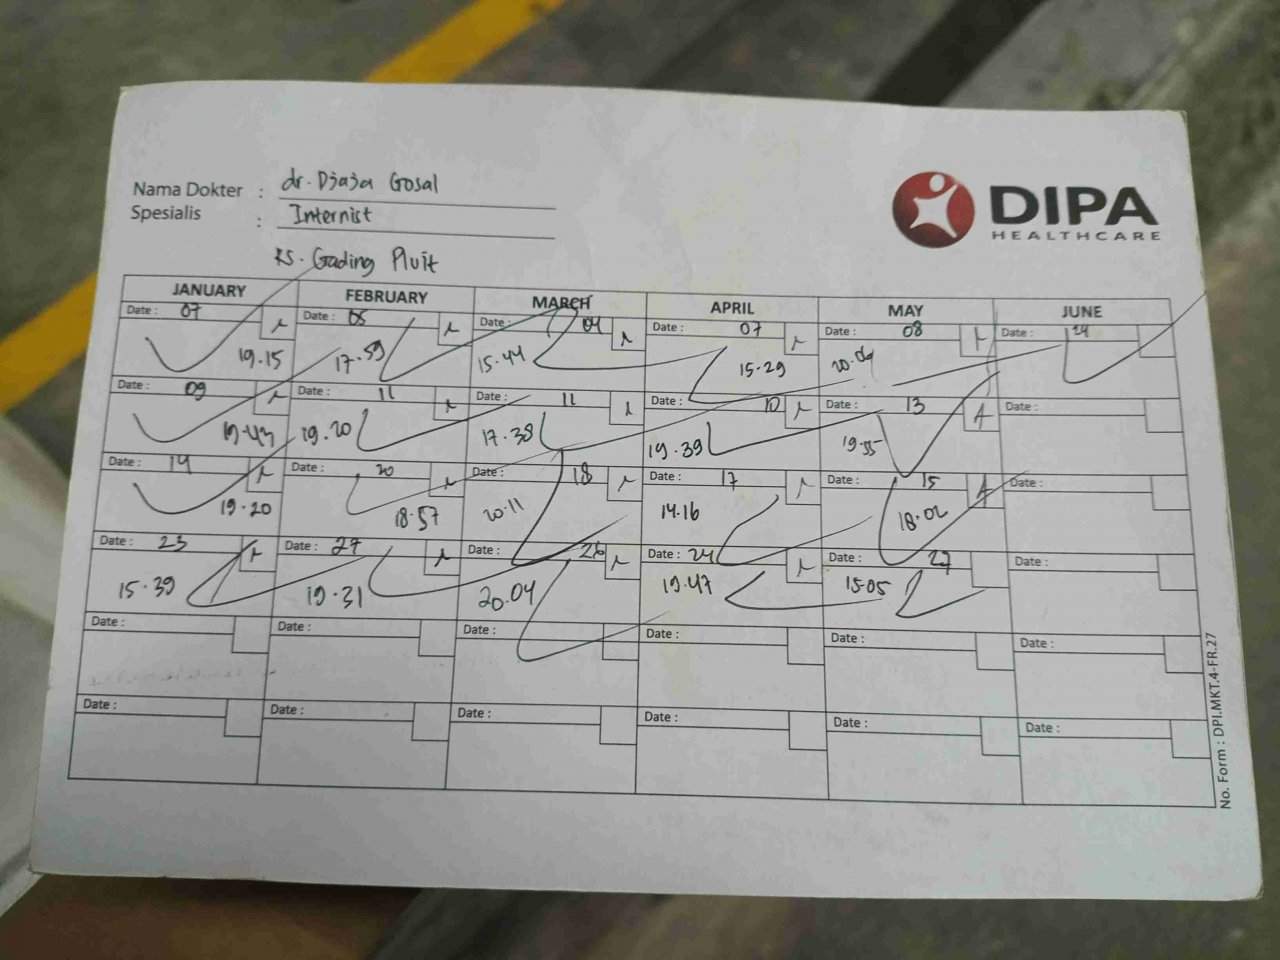 Nama Dokter : dr. Djaja Gosal
Spesialis : Internist
RS. Gading Pluit
DIPA
HEALTHCARE
JANUARY FEBRUARY MARCH APRIL MAY JUNE
Date : 07 Date : 05 Date : 04 Date : 07 Date : 08 Date : 24
19.15 17.59 15.44 15.29 20.04
Date : 09 Date : 11 Date : 11 Date : 10 Date : 13 Date :
19.43 19.20 17.38 19.39 19.55
Date : 14 Date : 20 Date : 18 Date : 17 Date : 15 Date :
19.20 18.57 20.11 14.16 18.02
Date : 23 Date : 27 Date : 26 Date : 24 Date : 27 Date :
15.39 19.31 20.04 19.47 15.05
Date : Date : Date : Date : Date : Date :
Date : Date : Date : Date : Date : Date :
No. Form : DPI.MKT.4-FR.27